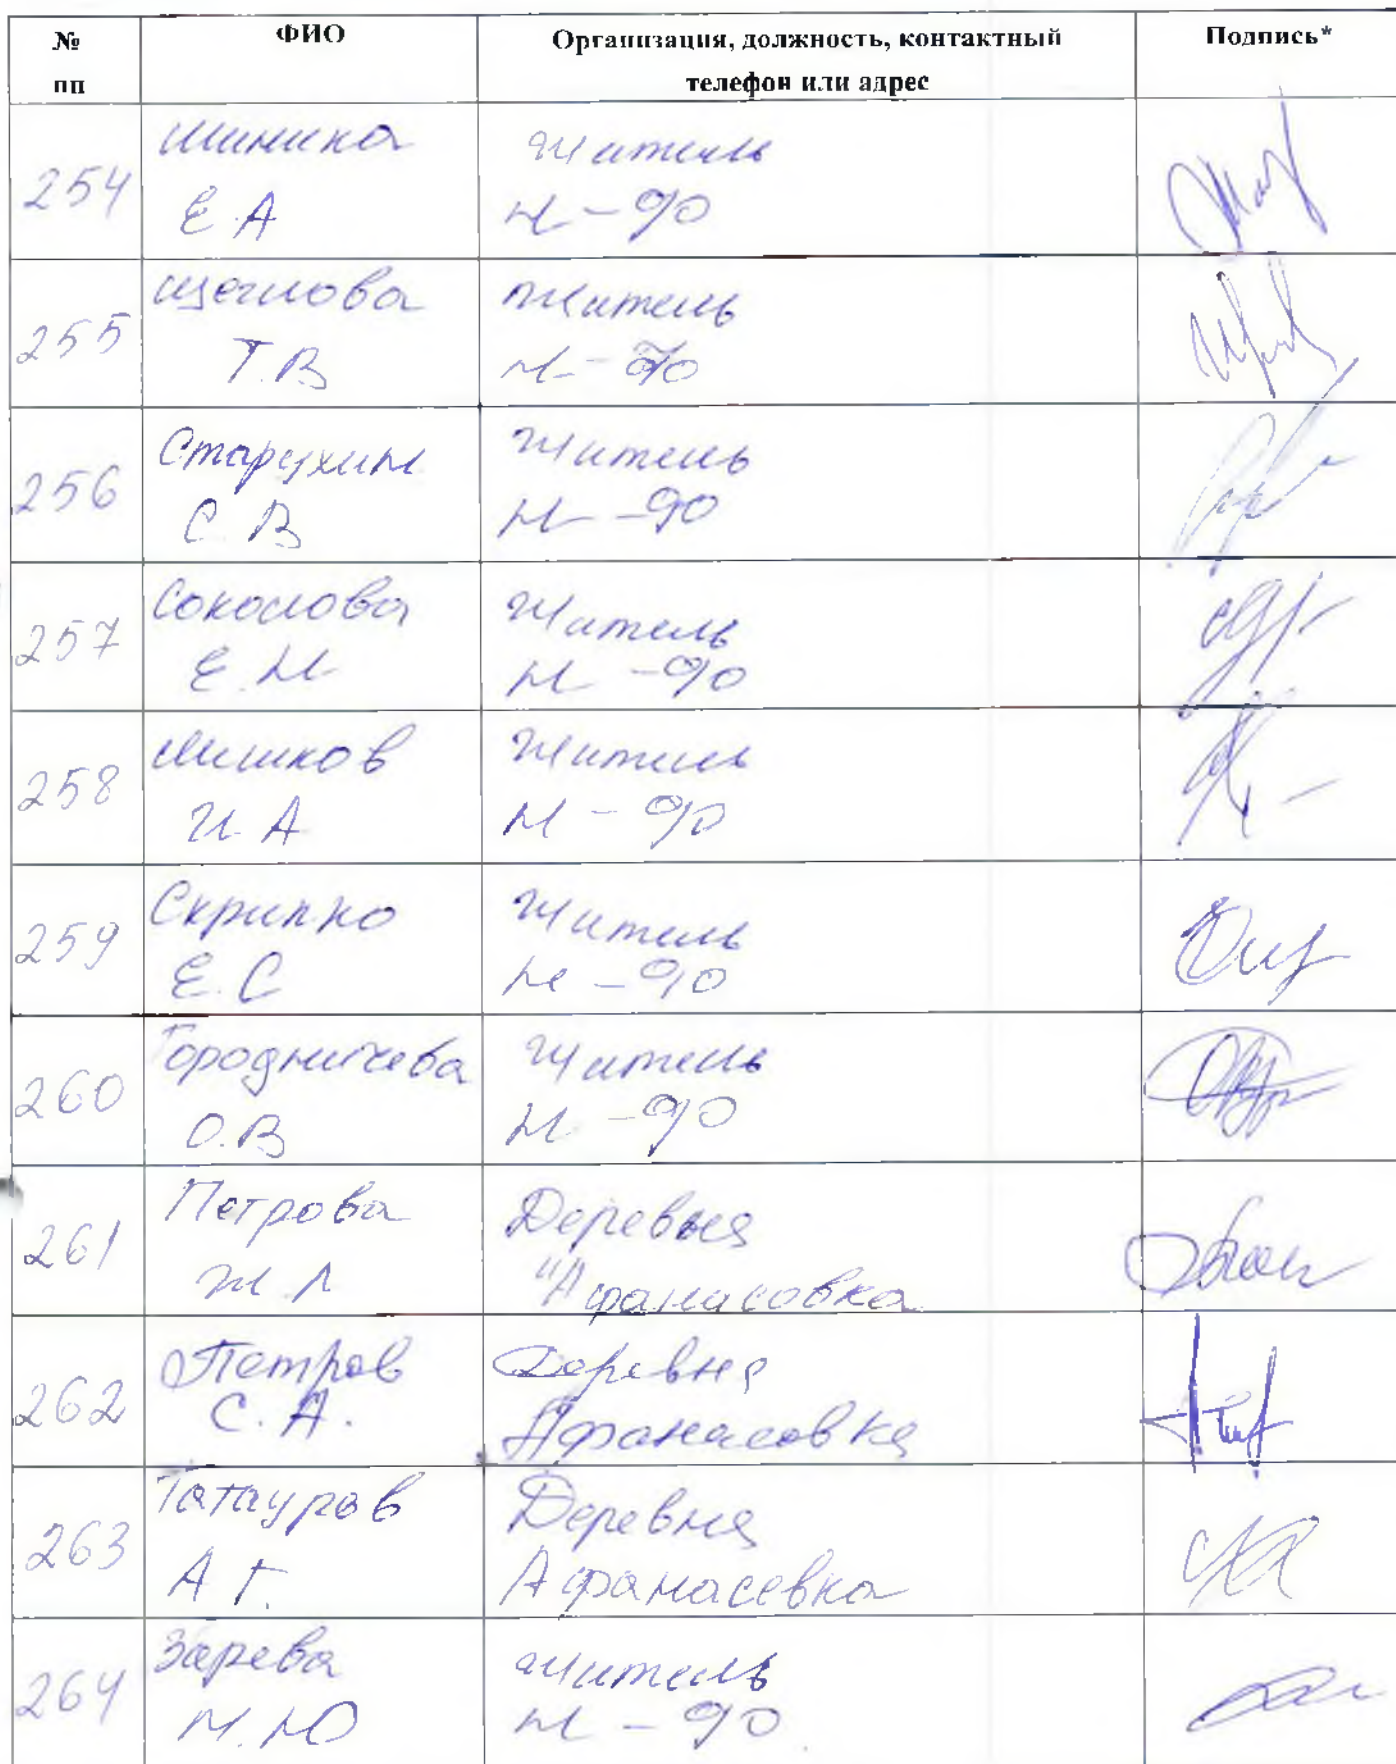 № пп
ФИО
Организация, должность, контактный
телефон или адрес
Подпись*
254
Шишка
Е.А
Житель
н-90
255
Щеглова
Т.В
Житель
н-90
256
Старухин
С В
Житель
н-90
257
Соколова
Е.Н
Житель
н-90
258
Мишков
И.А
Житель
н-90
259
Скрипко
Е.С
Житель
н-90
260
Городничева
О.В
Житель
н-90
261
Петрова
Ж Л
Деревня
"Афанасовка
262
Петров
С.А.
Деревня
Афанасовка
263
Татауров
А Г.
Деревня
Афанасевка
264
Зарева
М.Ю
Житель
н-90